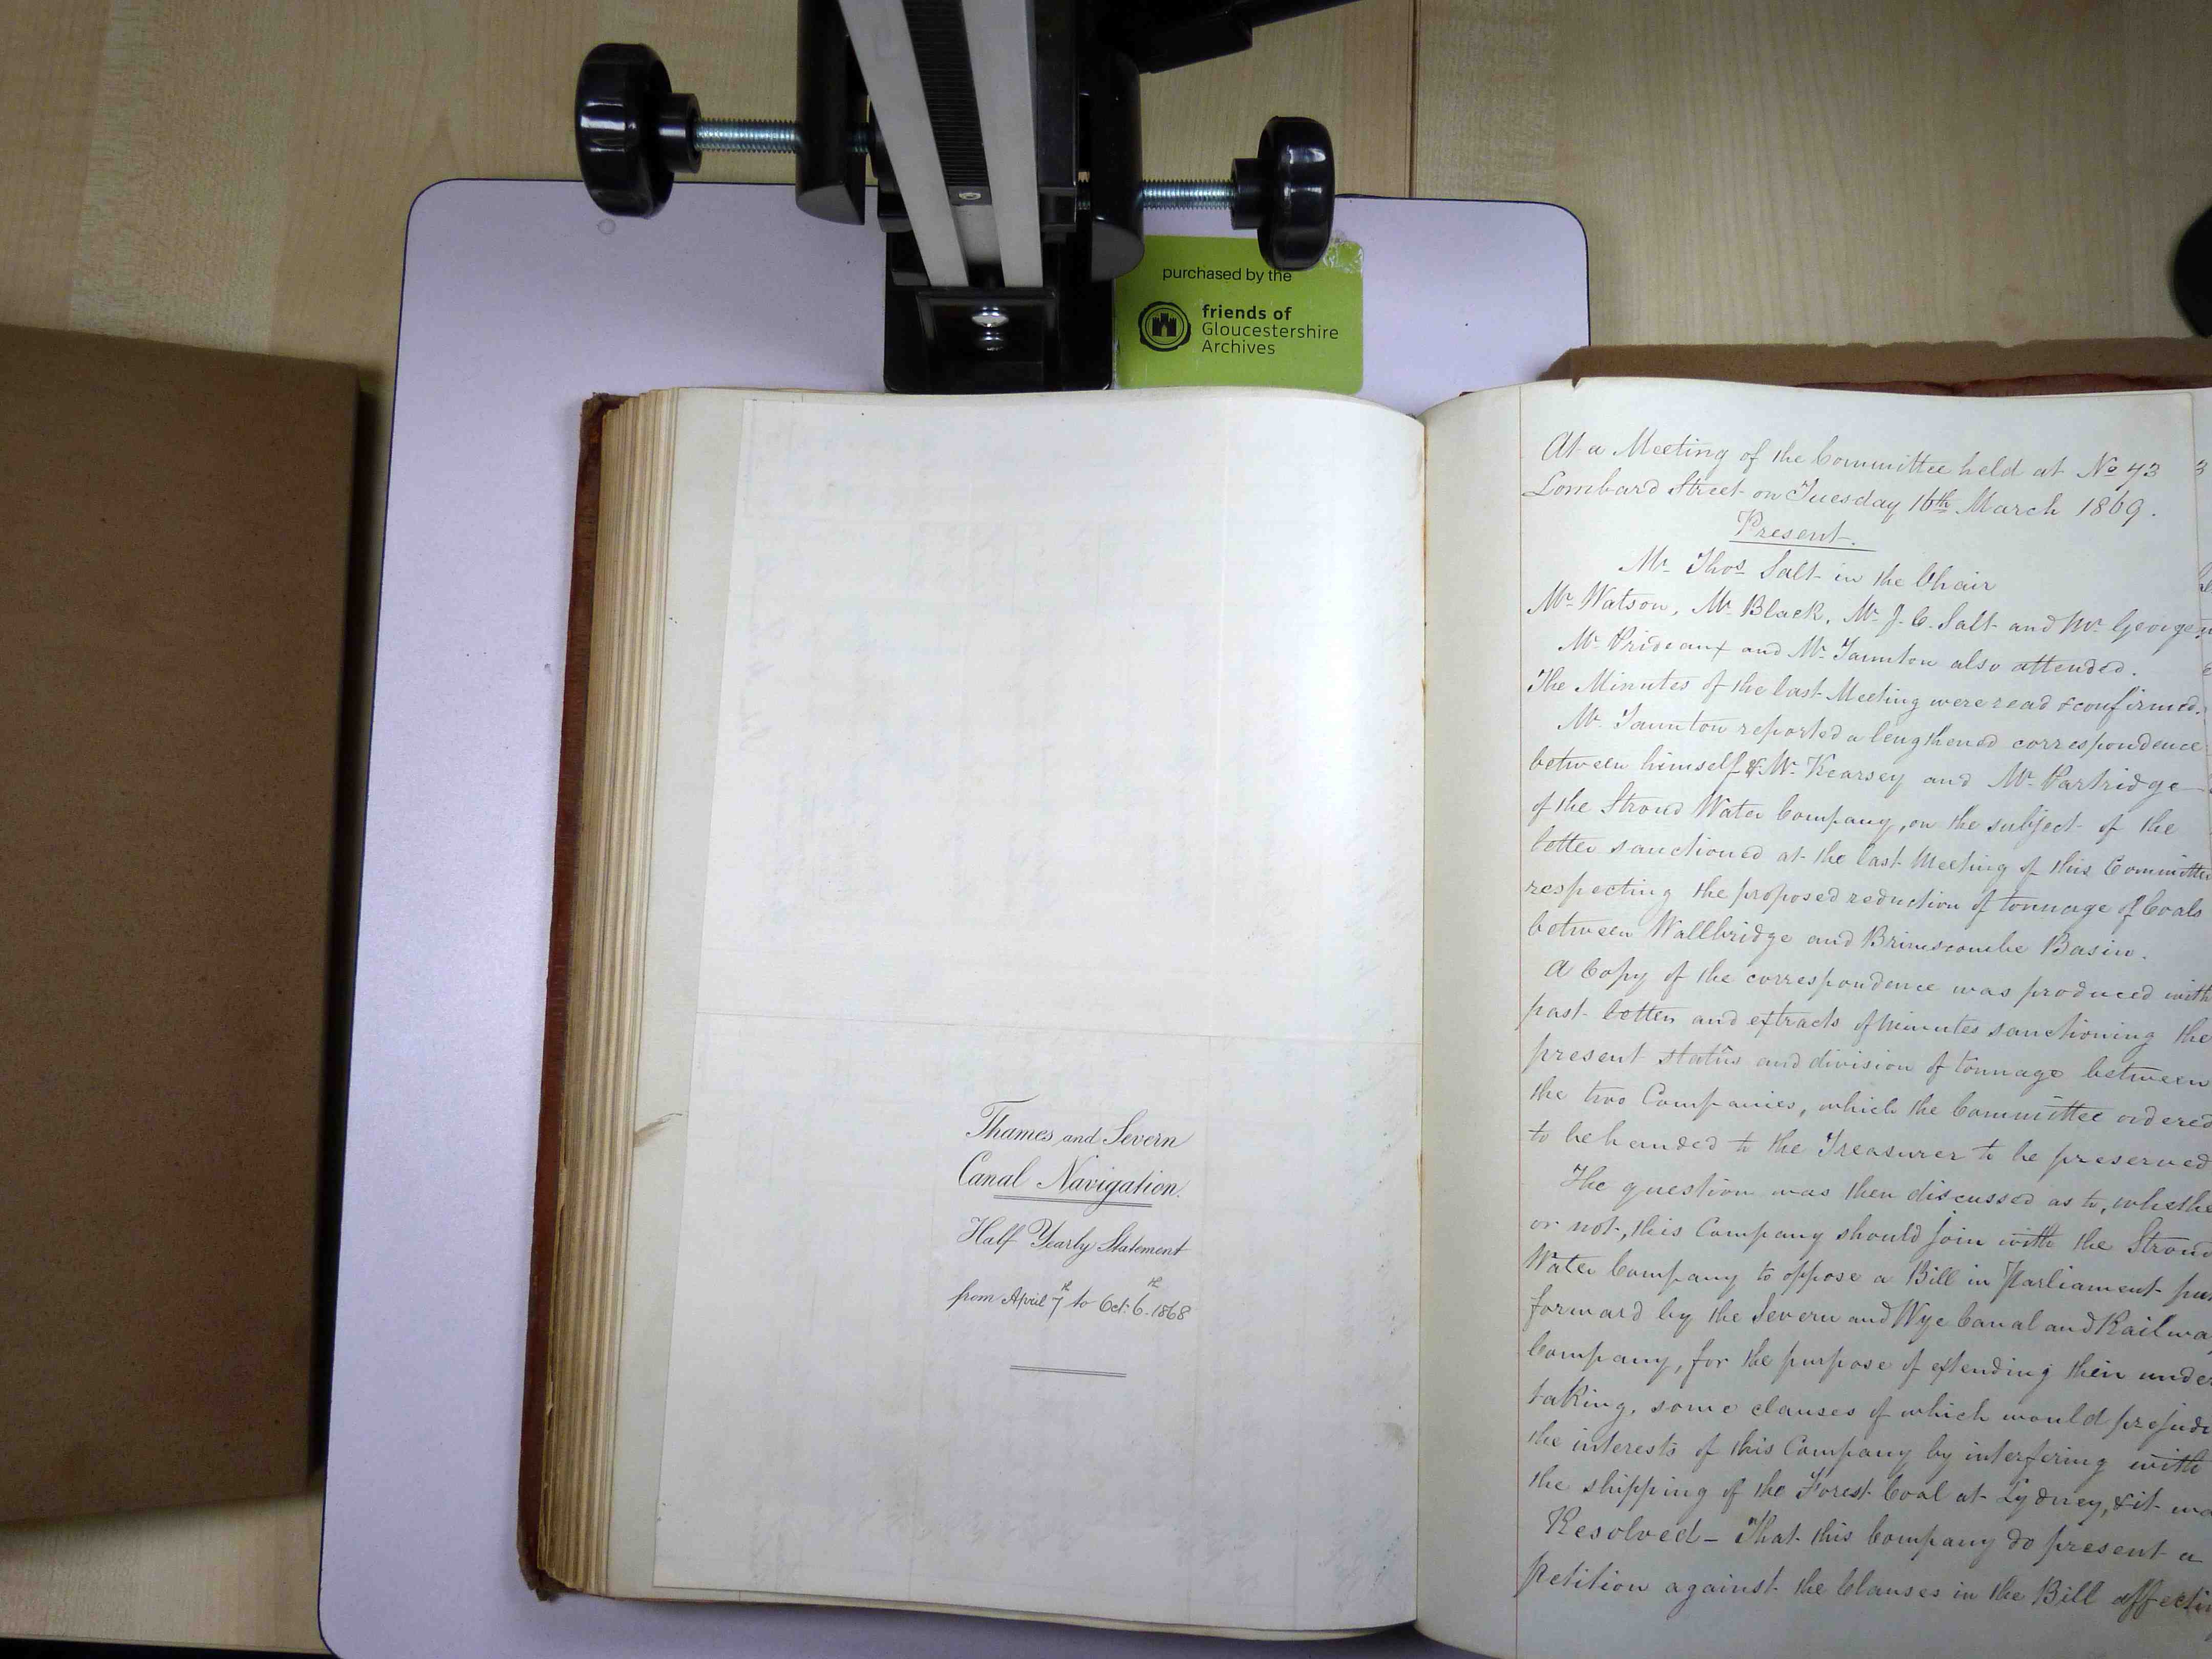 purchased by the
friends of
Gloucestershire
Archives
Thames and Severn
Canal Navigation.
Half Yearly Statement
from April 7th to Oct: 6th 1868
At a Meeting of the Committee held at No 43
Lombard Street on Tuesday 16th March 1869.
Present.
Mr Thos Salt in the Chair
Mr Watson, Mr Black, Mr J. C. Salt and Mr George
Mr Prideaux and Mr Taunton also attended.
The Minutes of the last Meeting were read & confirmed.
Mr Taunton reported a lengthened correspondence
between himself & Mr Kearsey and Mr Partridge
of the Stroud Water Company, on the subject of the
letter sanctioned at the last Meeting of this Committee
respecting the proposed reduction of tonnage of Coals
between Wallbridge and Brimscombe Basin.
A Copy of the correspondence was produced with
past letters and extracts of Minutes sanctioning the
present status and division of tonnage between
the two Companies, which the Committee ordered
to be handed to the Treasurer to be preserved
The question was then discussed as to, whethe
or not, this Company should join with the Stroud
Water Company to oppose a Bill in Parliament pu
forward by the Severn and Wye Canal and Railwa
Company, for the purpose of extending their under
taking, some clauses of which would prejudi
the interests of this Company by interfering with
the shipping of the Forest Coal at Lydney, & it wa
Resolved – That this Company do present a
petition against the Clauses in the Bill affectin